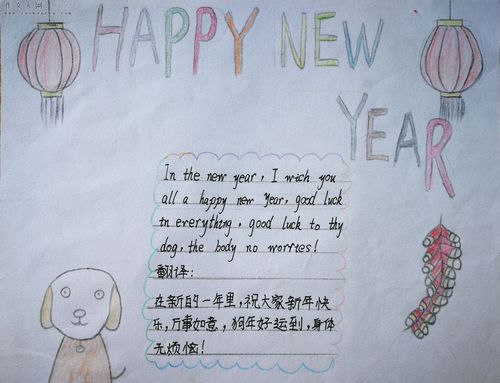 HAPPY NEW
YEAR
In the new year, I wich you
all a happy new Year, good luck
in everything, good luck to thy
dog, the body no worries!
翻译:
在新的一年里,祝大家新年快
乐,万事如意,狗年好运到,身体
无烦恼!